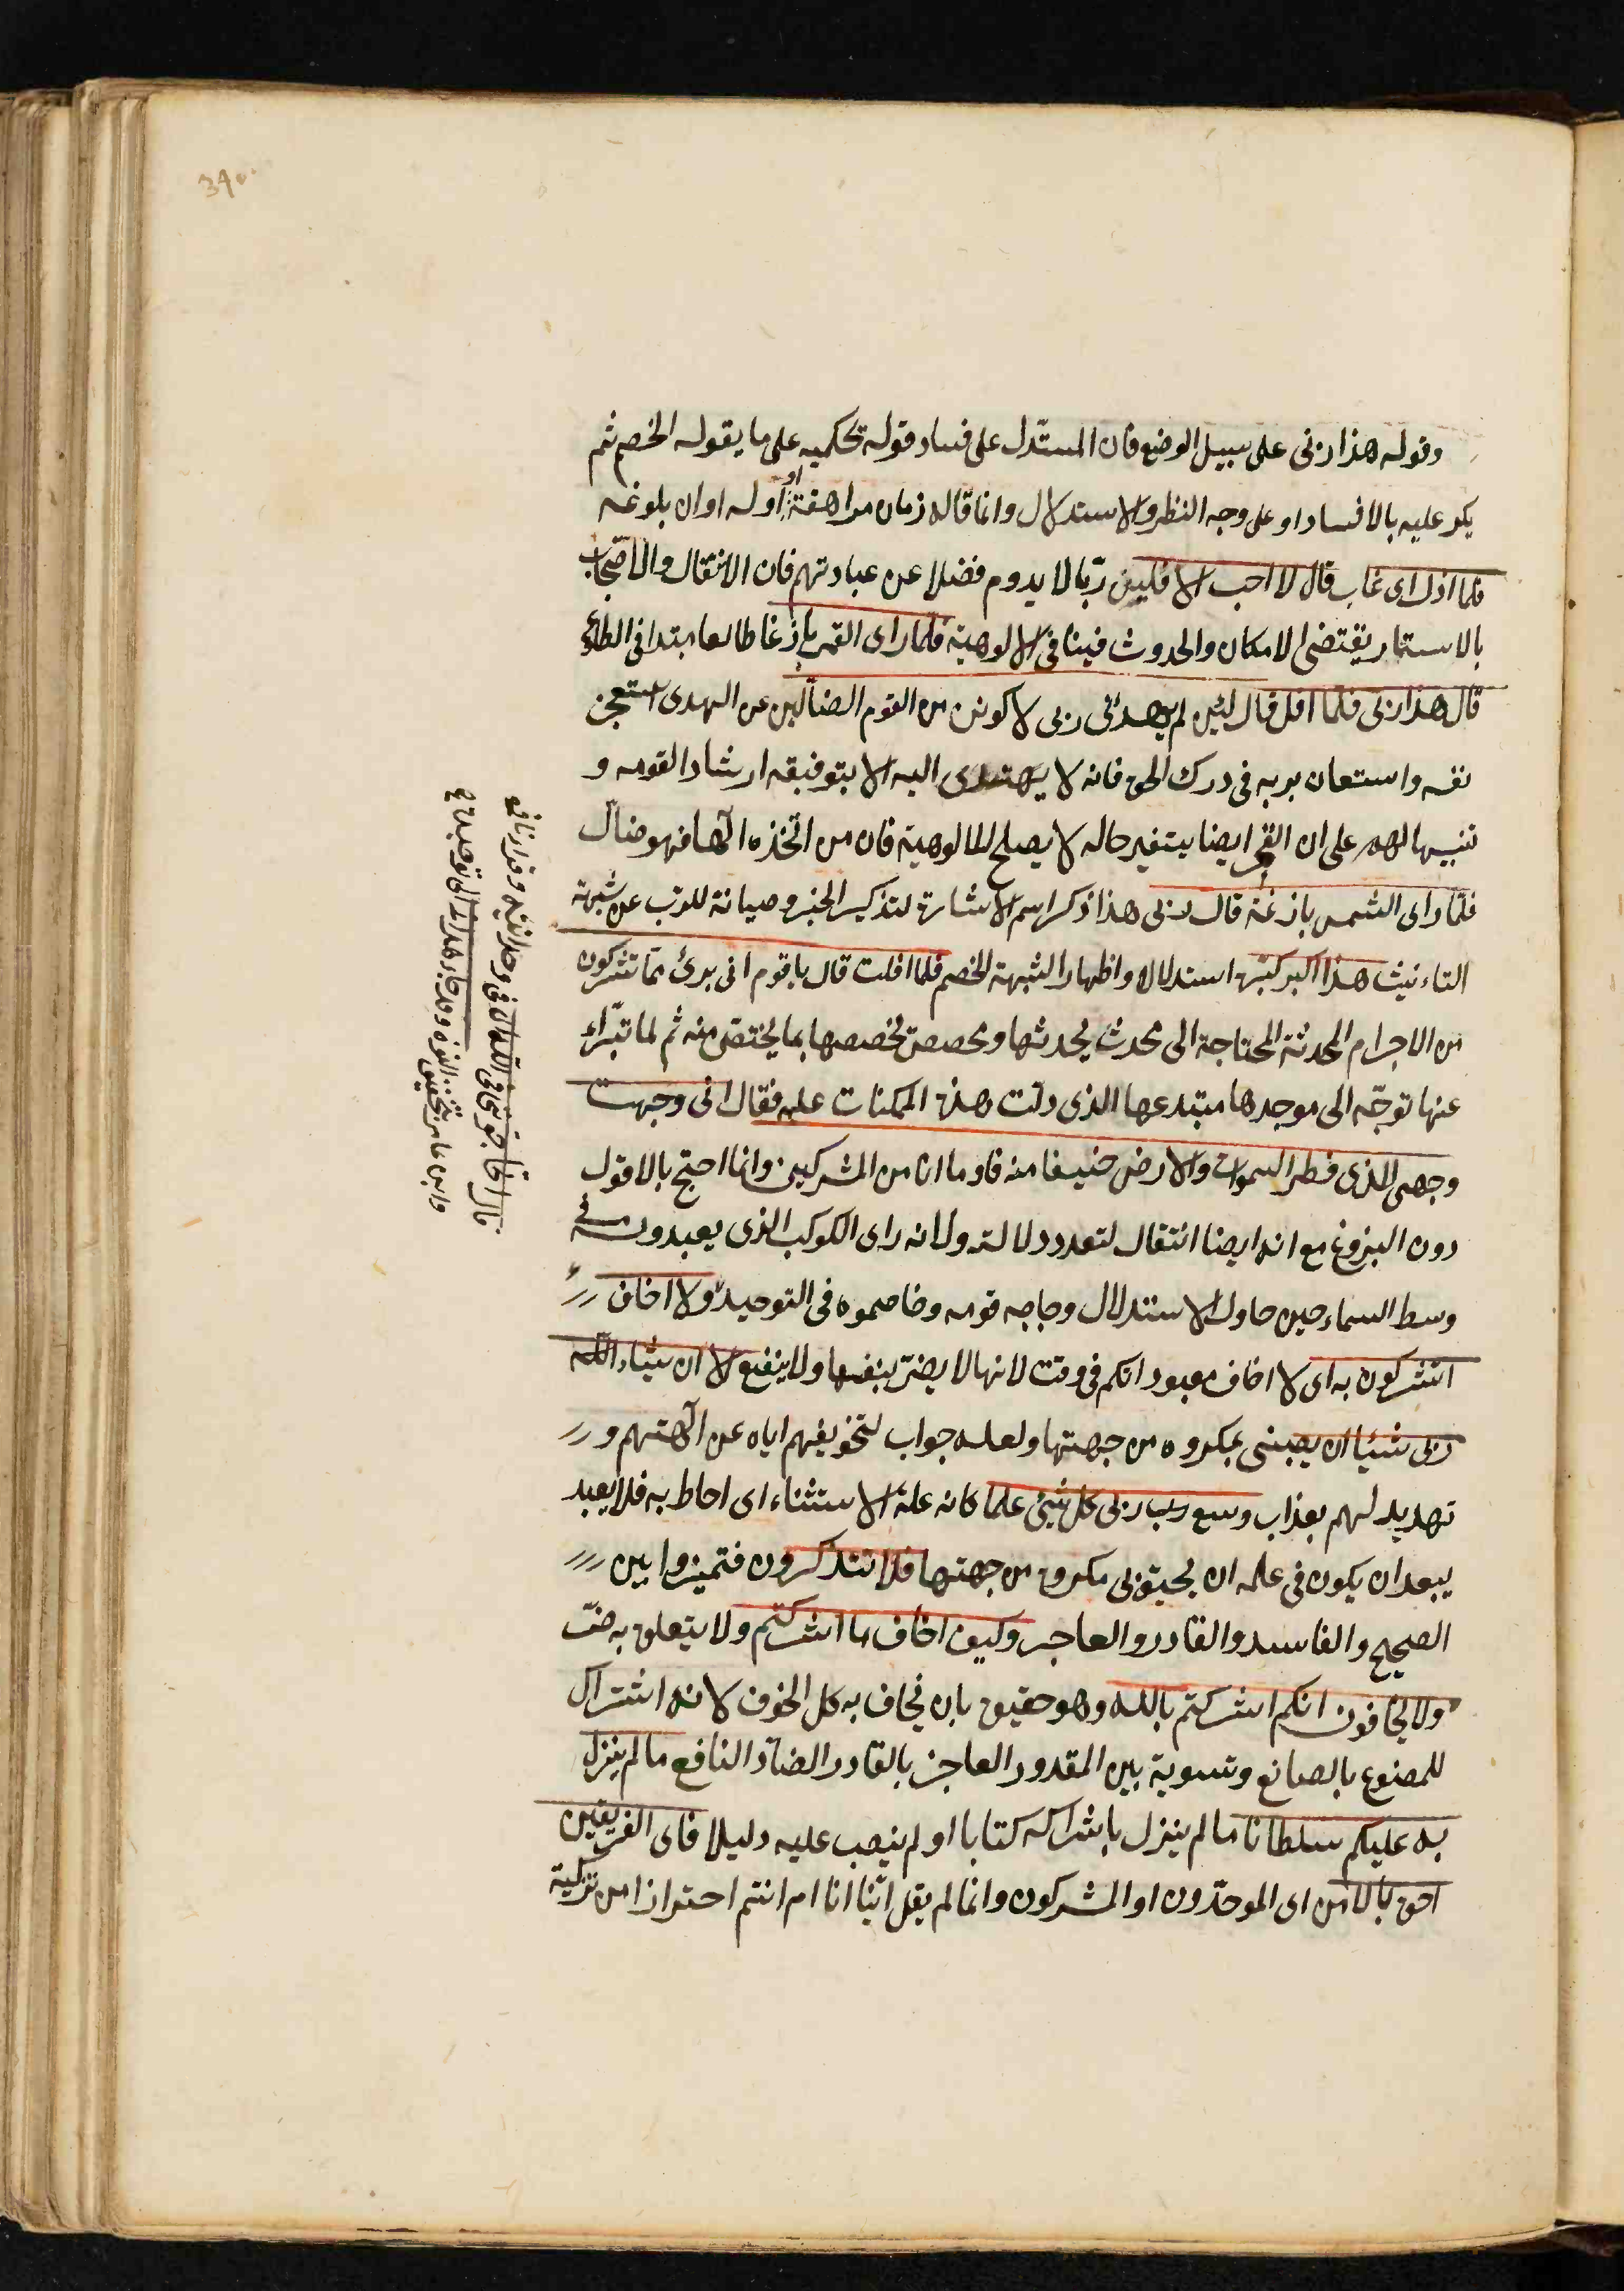 وقوله هذا ربى على سبيل الوضع فان المستدل على فساد قوله يحكيه على ما يقوله الخصم ثم
يكر عليه بالافساد او على وجه النظر والاستدلال وانما قاله زمان مراهقة او اوله اوان بلوغه
فلما افل اى غاب قال لا احب الافلين ربّا لا يدوم فضلا عن عبادتهم فان الانتقال والاحتجاب
بالاستتار يقتضى الامكان والحدوث فينافى الالوهية فلما راى القمر بازغا طالعا مبتدا فى الطلوع
قال هذا ربى فلما افل قال لئن لم يهدنى ربى لاكونن من القوم الضالّين عن الهدى استعجز
نفسه واستعان بربه فى درك الحق فانه لا يهتدى اليه الا بتوفيقه ارشادا لقومه و
تنبيها لهم على ان القمر ايضا يتغير حاله لا يصلح للالوهية فان من اتّخذه الٓها فهو ضالّ
فلمّا راى الشمس بازغة قال ربى هذا ذكر اسم الاشارة لتذكير الخبر وصيانة للرب عن شبهة
التاءنيث هذا اكبر كبّره استدلالا واظهارا لشبهة الخصم فلما افلت قال ياقوم انى برئ ممّا تشركون
من الاجرام المحدثة المحتاجة الى محدث يحدثها ومخصص يخصصها بما يختص منه ثم لما تبّراء
عنها توجّه الى موجدها مبتدعها الذى دلّت هذه الممكنات عليه فقال انى وجهت
وجهى للذى فطر السموات والارض حنيفا منه فا وما انا من المشركين وانما احتج بالافول
دون البزوغ مع انه ايضا انتقال لتعدد دلالته ولانه راى الكوكب الذى يعبدونه فى
وسط السماء حين حاول الاستدلال وحاجه قومه وخاصموه فى التوحيد ولا اخاف
اتشركون به اى لا اخاف معبوداتكم فى وقت لانها لا يضرّ بنفسها ولا ينفع الا ان يشاء اللّه
ربى شيئا ان يصيبنى بمكروه من جهتها ولعله جواب لتخويفهم اياه عن الٓهتهم و
تهديد لهم بعذاب وسع رب ربى كل شيئ علما كانه علة الاستثناء اى احاط به فلا يعبد
يبعد ان يكون فى علمه ان يحيق بى مكروه من جهتها فلا تتذكرون فتميزوا بين
الصحيح والفاسد والقادر والعاجر وكيف اخاف ما اشركتم ولا يتعلق به ضرّ
ولا يخافون انكم اشركتم باللّه وهو حقيق بان يخاف به كل الخوف لانه اشتراك
للمصنوع بالصانع وتسوية بين المقدور العاجز بالقادر الضارّ النافع ما لم ينزل
به عليكم سلطانا ما لم ينزل باشراكه كتابا او لم ينصب عليه دليلا فاى الفريقين
احق بالامن اى الموحّدون او المشركون وانما لم يقل ايّنا انا ام انتم احترازا من تزكية
قال اتحاجّونى فى اللّه فى وحدانيته وقرا نافع
وابن عامر بتخفيف النون وقد هدان الى توحيده